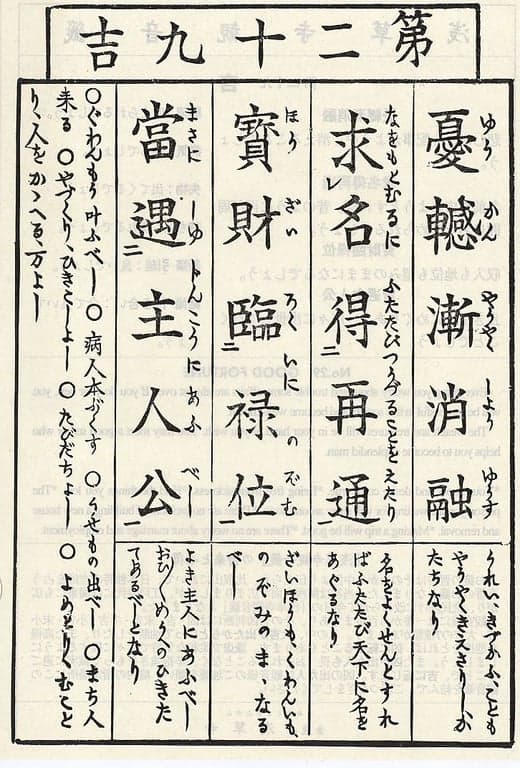 第二十九吉
憂轗漸消融
ゆう かん やうやく しよう ゆす
うれい、きづかふ、ことも
やうやくきえさりしか
たなり
求レ名得二再通一
なをもとむるに ふたたびつうずることをえたり
名をよくせんとすれ
ばふたたび天下に名を
あぐるなり
寳財臨二禄位一
ほう ざい ろく いに の ぞむ
ざいほうもくわんいも、
のぞみのまゝなる
べし
當遇二主人公一
まさに しゆじんこうに あふ べし
よき主人にあふべし
おひ〱めぐみのひきた
てあるべしとなり
○ぐわんもう叶ふべし ○病人本ぶくす ○うせもの出べし ○まち人
来る ○やづくり、ひきこしよし ○たびだちよし ○よめとりむこと
り、人をかゝへる、万よし